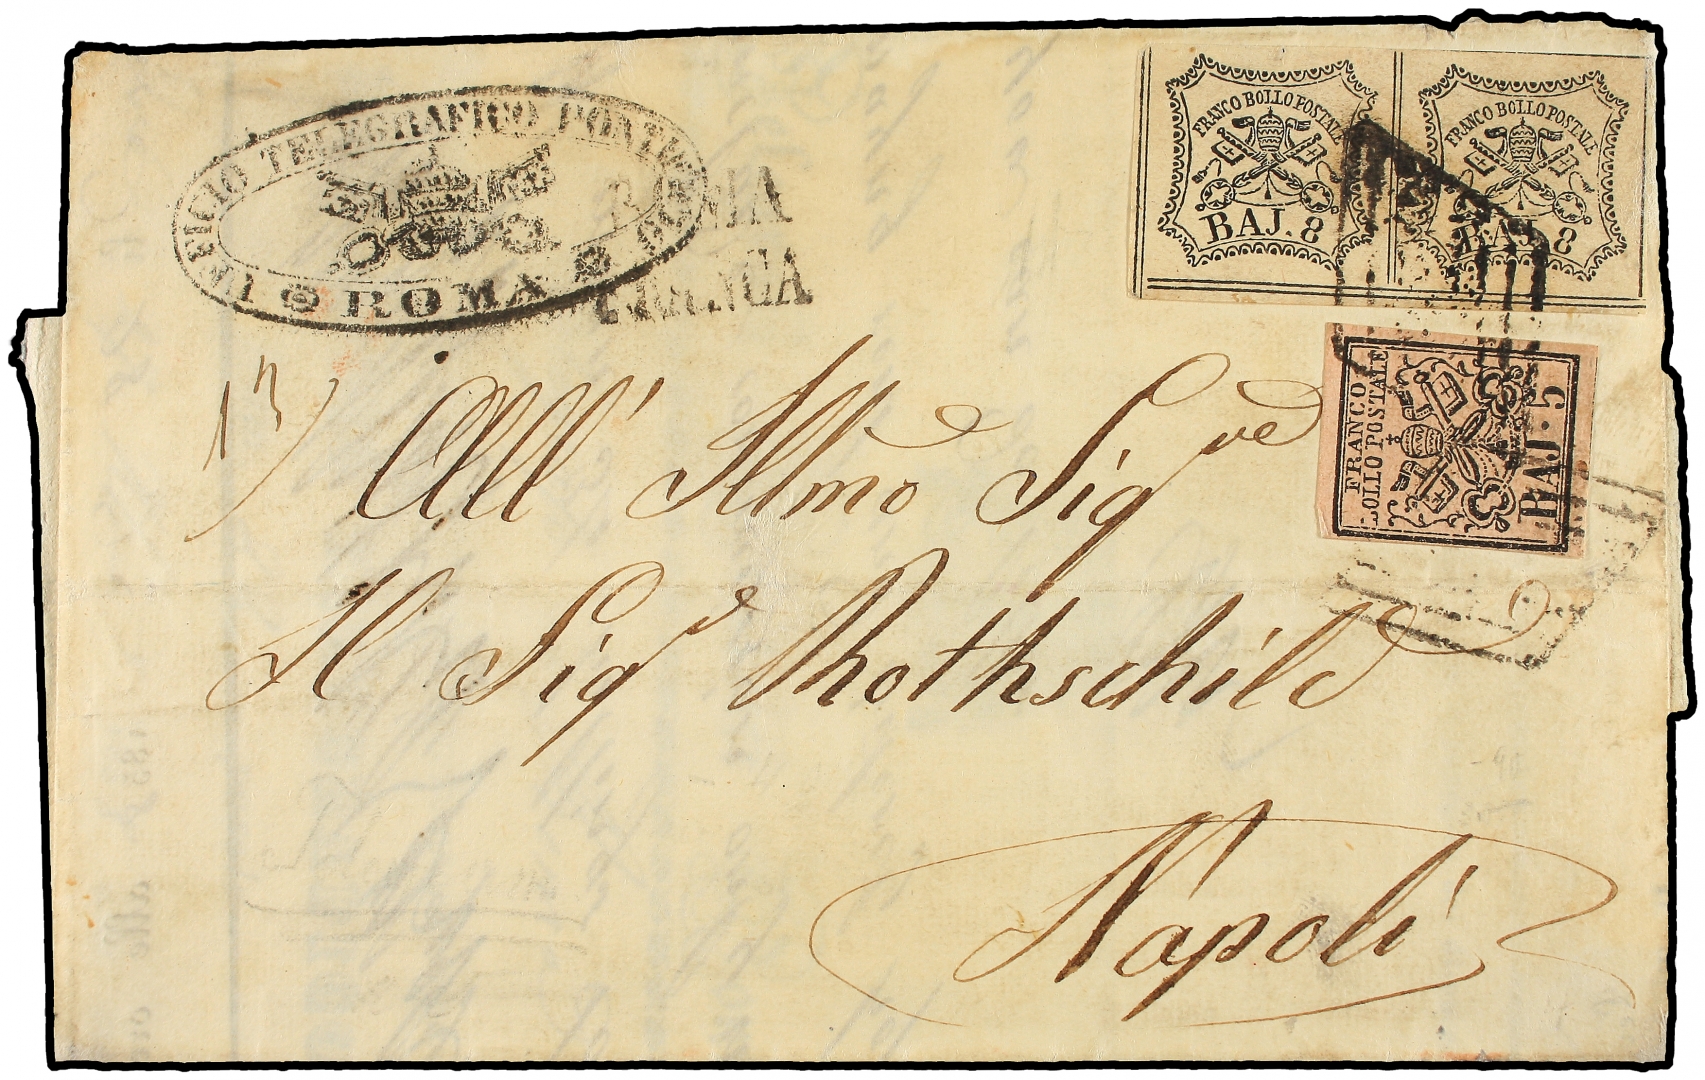 UFFICIO TELEGRAFICO PONTIFICIO
ROMA
ROMA
FRANCA
FRANCO BOLLO POSTALE
BAJ. 8
FRANCO BOLLO POSTALE
BAJ. 8
FRANCO
BOLLO POSTALE
BAJ. 5
All' Illmo Sigre
Il Sigr Rothschild
Napoli